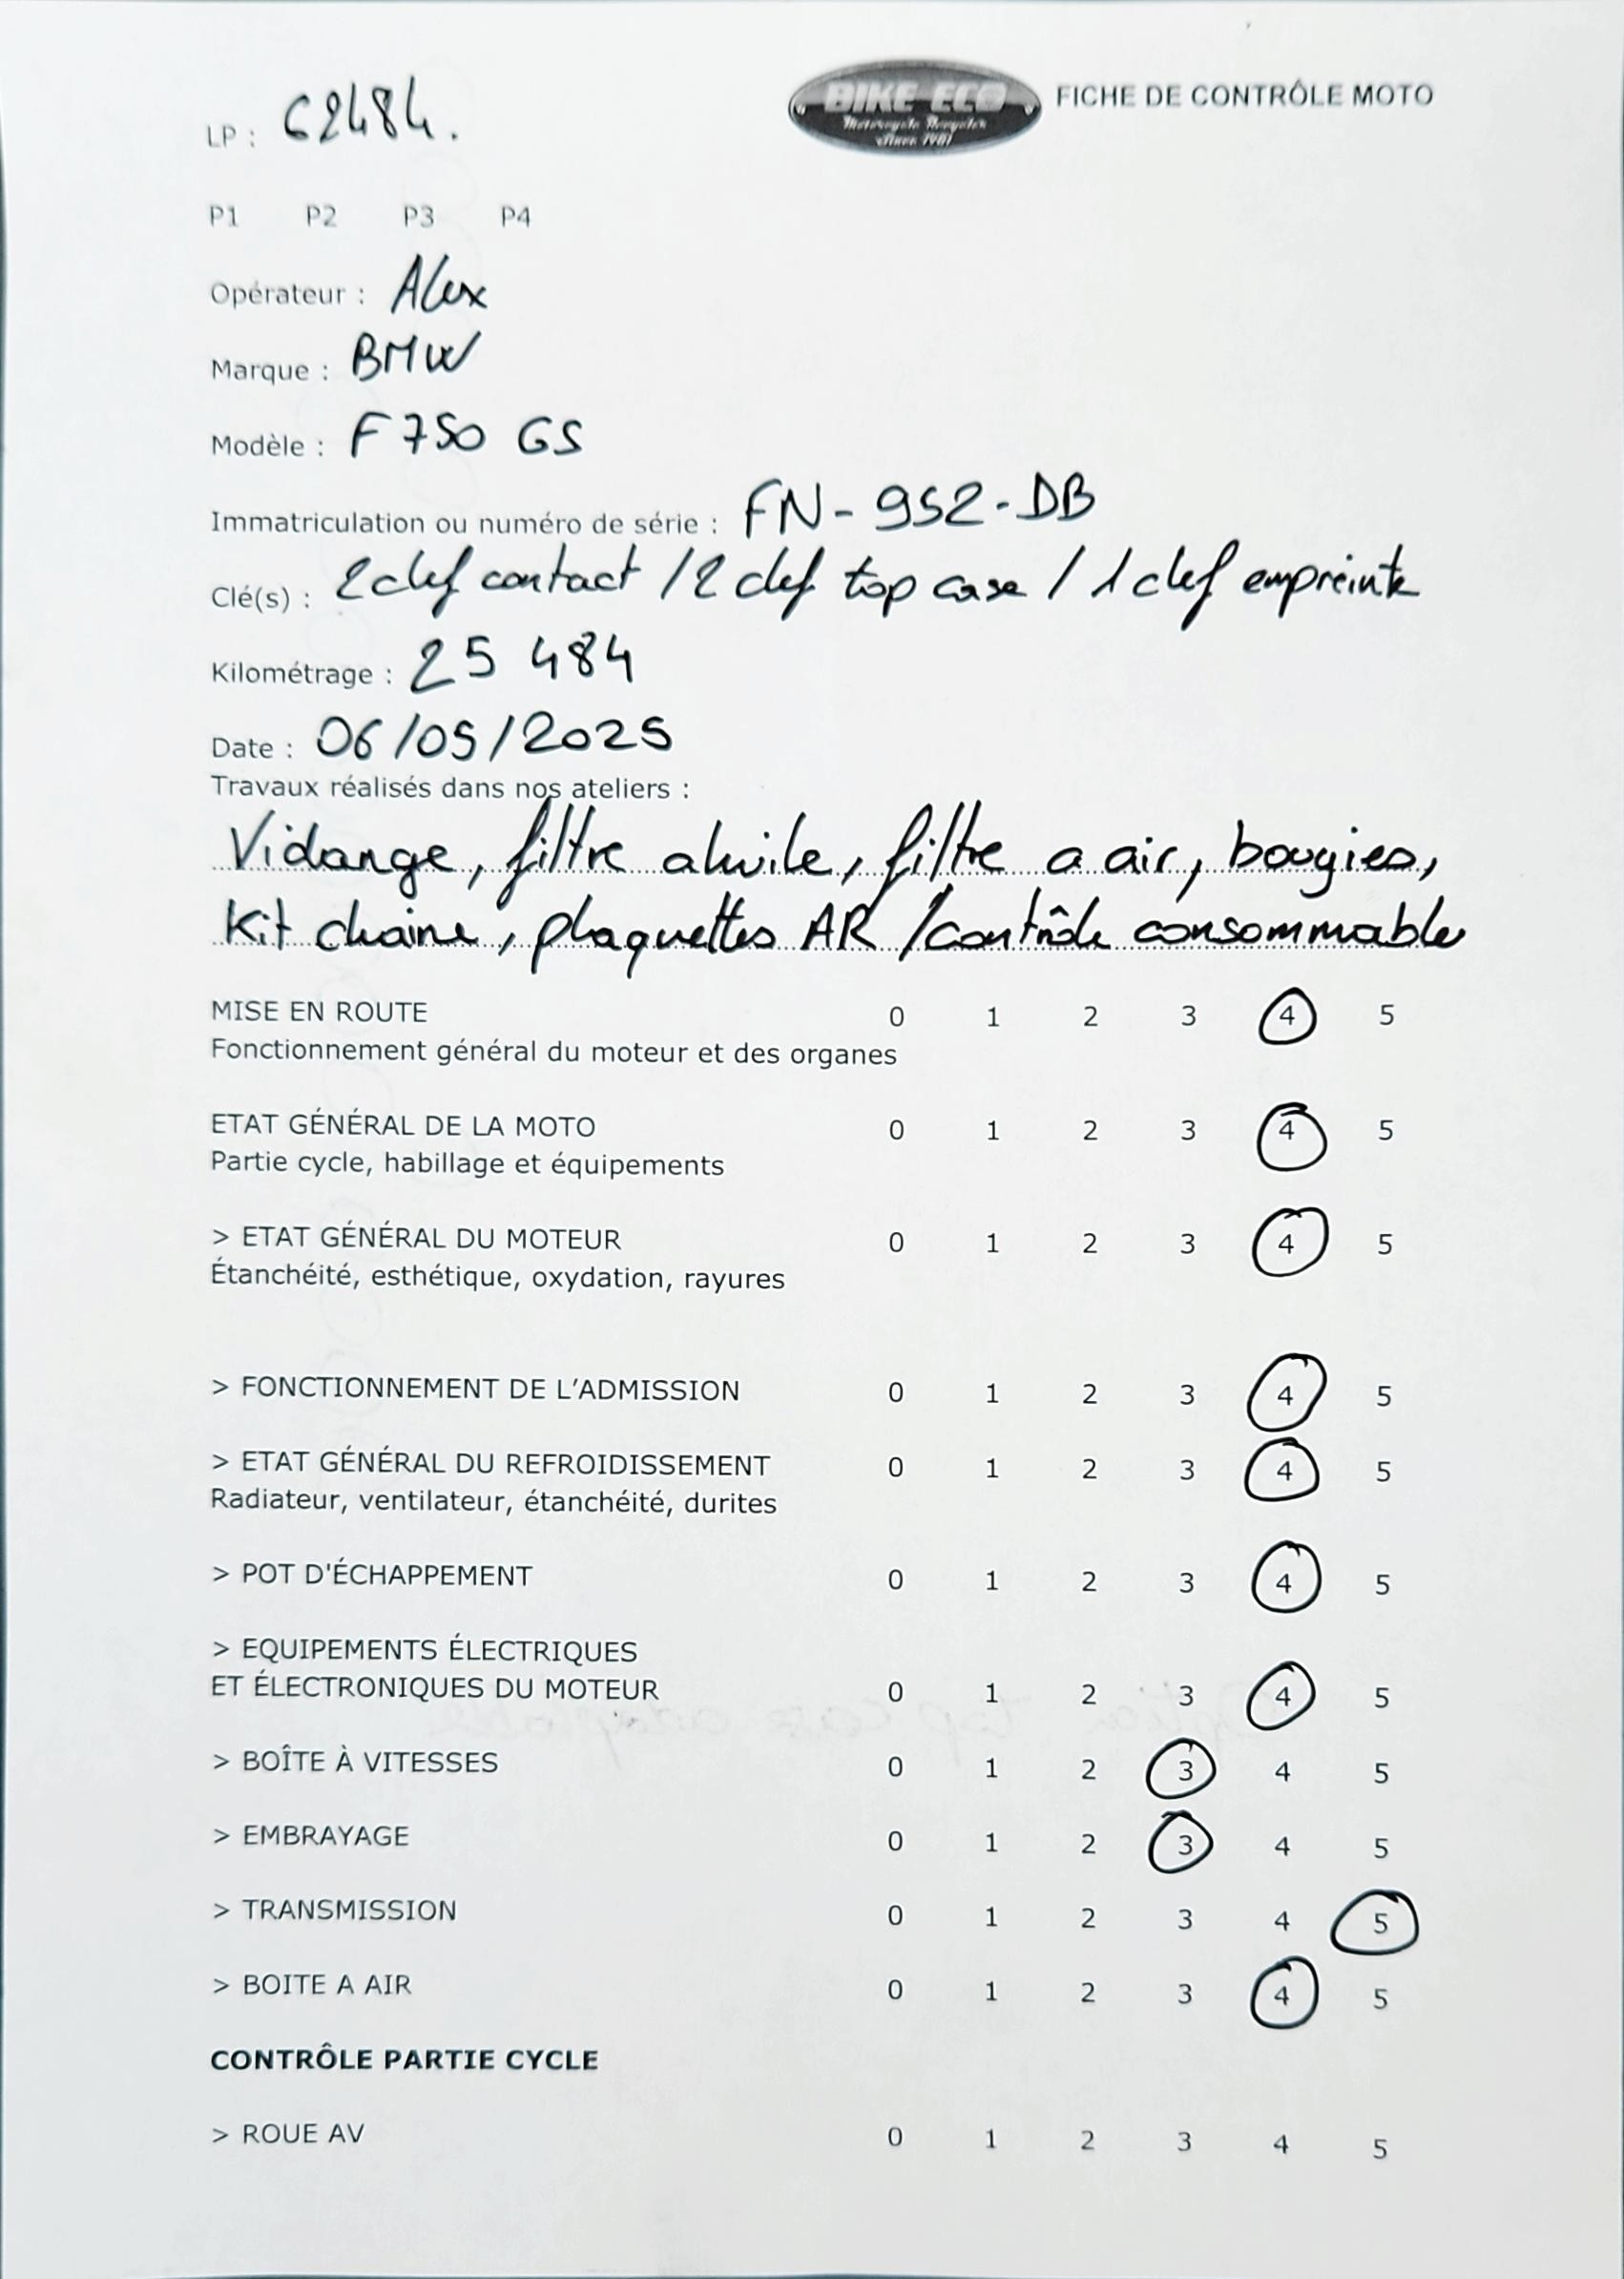 BIKE ECO
Motorcycle Recycler
Since 1981
FICHE DE CONTRÔLE MOTO
LP : 62484.
P1 P2 P3 P4
Opérateur : Alex
Marque : BMW
Modèle : F 750 GS
Immatriculation ou numéro de série : FN-952-DB
Clé(s) : 2 clef contact / 2 clef top case / 1 clef empreinte
Kilométrage : 25 484
Date : 06/05/2025
Travaux réalisés dans nos ateliers :
Vidange, filtre a huile, filtre a air, bougies,
Kit chaine, plaquettes AR / contrôle consommable
MISE EN ROUTE 0 1 2 3 4 5
Fonctionnement général du moteur et des organes
ETAT GÉNÉRAL DE LA MOTO 0 1 2 3 4 5
Partie cycle, habillage et équipements
> ETAT GÉNÉRAL DU MOTEUR 0 1 2 3 4 5
Étanchéité, esthétique, oxydation, rayures
> FONCTIONNEMENT DE L'ADMISSION 0 1 2 3 4 5
> ETAT GÉNÉRAL DU REFROIDISSEMENT 0 1 2 3 4 5
Radiateur, ventilateur, étanchéité, durites
> POT D'ÉCHAPPEMENT 0 1 2 3 4 5
> EQUIPEMENTS ÉLECTRIQUES
ET ÉLECTRONIQUES DU MOTEUR 0 1 2 3 4 5
> BOÎTE À VITESSES 0 1 2 3 4 5
> EMBRAYAGE 0 1 2 3 4 5
> TRANSMISSION 0 1 2 3 4 5
> BOITE A AIR 0 1 2 3 4 5
CONTRÔLE PARTIE CYCLE
> ROUE AV 0 1 2 3 4 5